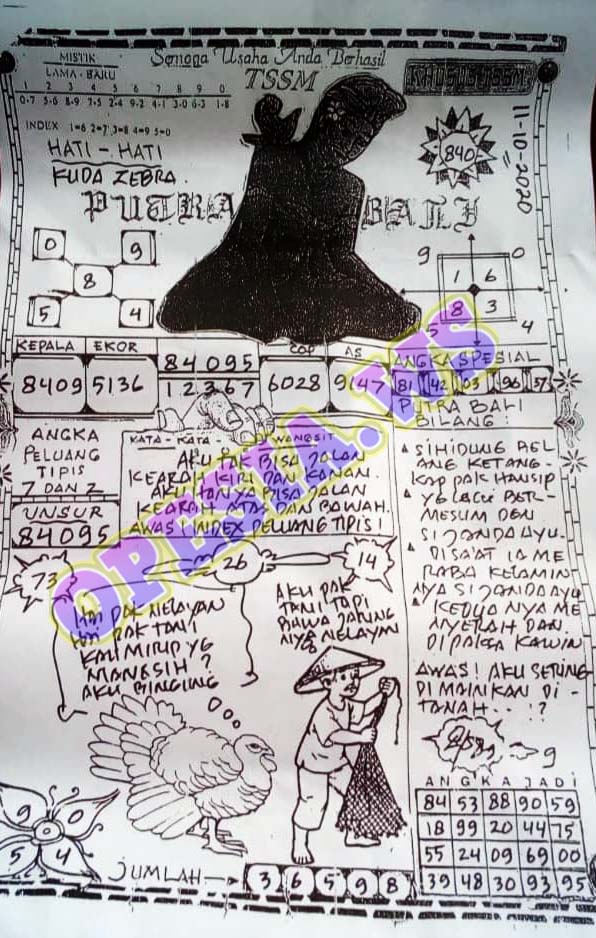 Semoga Usaha Anda Berhasil
TSSM
KHUSUS TSSM
MISTIK
LAMA - BARU
1 2 3 4 5 6 7 8 9 0
0-7 5-6 8-9 7-5 2-4 9-2 4-1 3-0 6-3 1-8
INDEX 1=6 2=7 3=8 4=9 5=0
HATI - HATI
KUDA ZEBRA.
840
11-10-2020
PUTRA BALI
0 9
8
5 4
9 0
1 6
8 3
5 4
KEPALA EKOR
8409 5136
84095
12367
COP AS
6028 9147
ANGKA SPESIAL
81 42 03 96 57
ANGKA
PELUANG
TIPIS
7 DAN 2
UNSUR
84095
KATA - KATA WANGSIT
AKU PAK BISA JALAN
KEARAH KIRI DAN KANAN.
AKU HANYA BISA JALAN
KEARAH ATAS DAN BAWAH.
AWAS INDEX PELUANG TIPIS!
PUTRA BALI
BILANG:
SIHIDUNG BEL
ANG KETANG-
KAP PAK HANSIP
YG LAGI BER-
MESUM DGN
SI JANDA AYU.
DISAAT IA ME
RABA KELAMIN
NYA SI JANDA AYU
KEDUA NYA ME
NYERAH DAN
DIPAKSA KAWIN
AWAS! AKU SERING
DI MAINKAN DI-
TANAH --- !?
73
26
14
HAI PAK NELAYAN
HAI PAK TANI
KAU MIRIP YG
MANASIH?
AKU BINGUNG
AKU PAK
TANI TAPI
BAWA JARING
NYA NELAYAN
9
ANGKA JADI
84 53 88 90 59
18 99 20 44 75
55 24 09 69 00
39 48 30 93 95
9 0
0
5 4
JUMLAH
3 6 5 9 8
OPESIA.WS